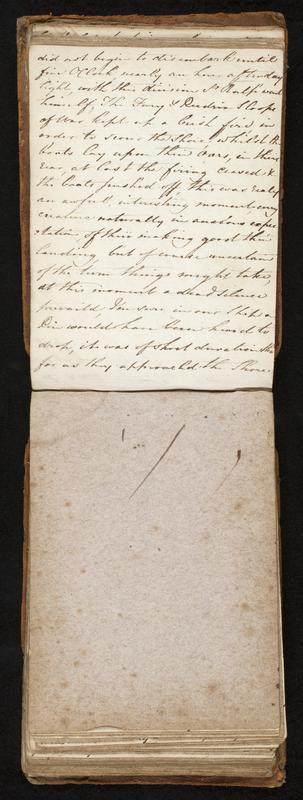 did not begin to disembark until
five OClock nearly an hour after day
light, with this division Sr Ralph went
himself, The Fury & Sloops
of War kept up a brisk fire in
order to scour the Shore, whilst the
boats lay upon their Oars, in their
rear, at last the firing ceased &
the boats pushed off, this was really
an awful, intresting moment, every
creature naturally in anxious expec
tation of their making good their
landing, but of course uncertain
of the turn things might take,
at this moment a dead silence
prevaild, I'm sure in our Ship a
Pin would have been heard to
drop, it was of short duration tho
for as they approached the Shore